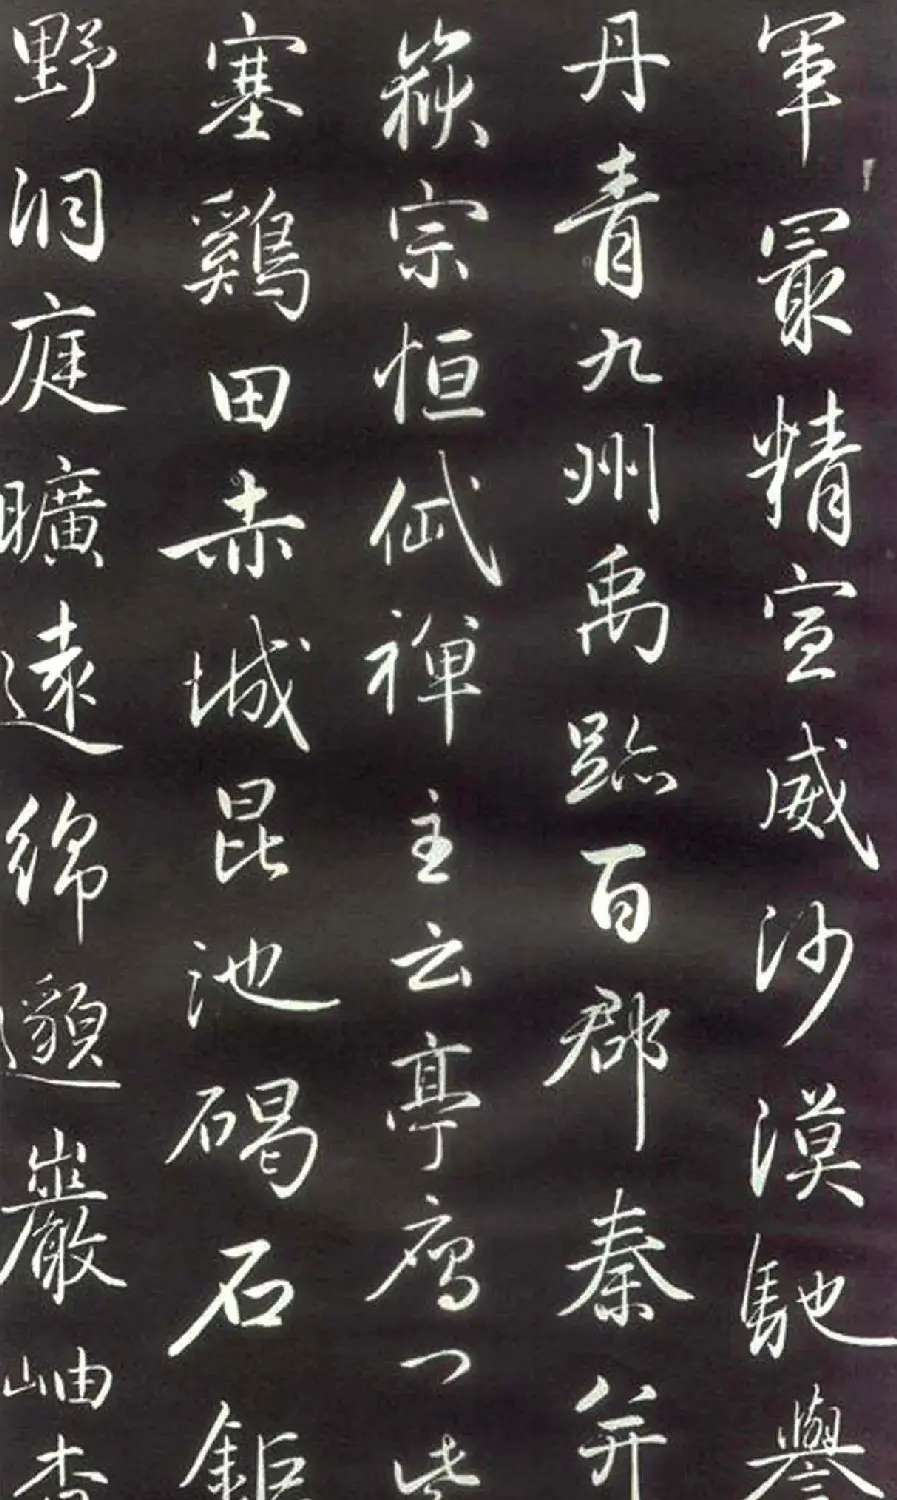 軍冣精宣威沙漠馳譽
丹青九州禹跡百郡秦并
嶽宗恒岱禪主云亭鴈門紫
塞鷄田赤城昆池碣石鉅
野洞庭曠遠綿邈巖岫杳